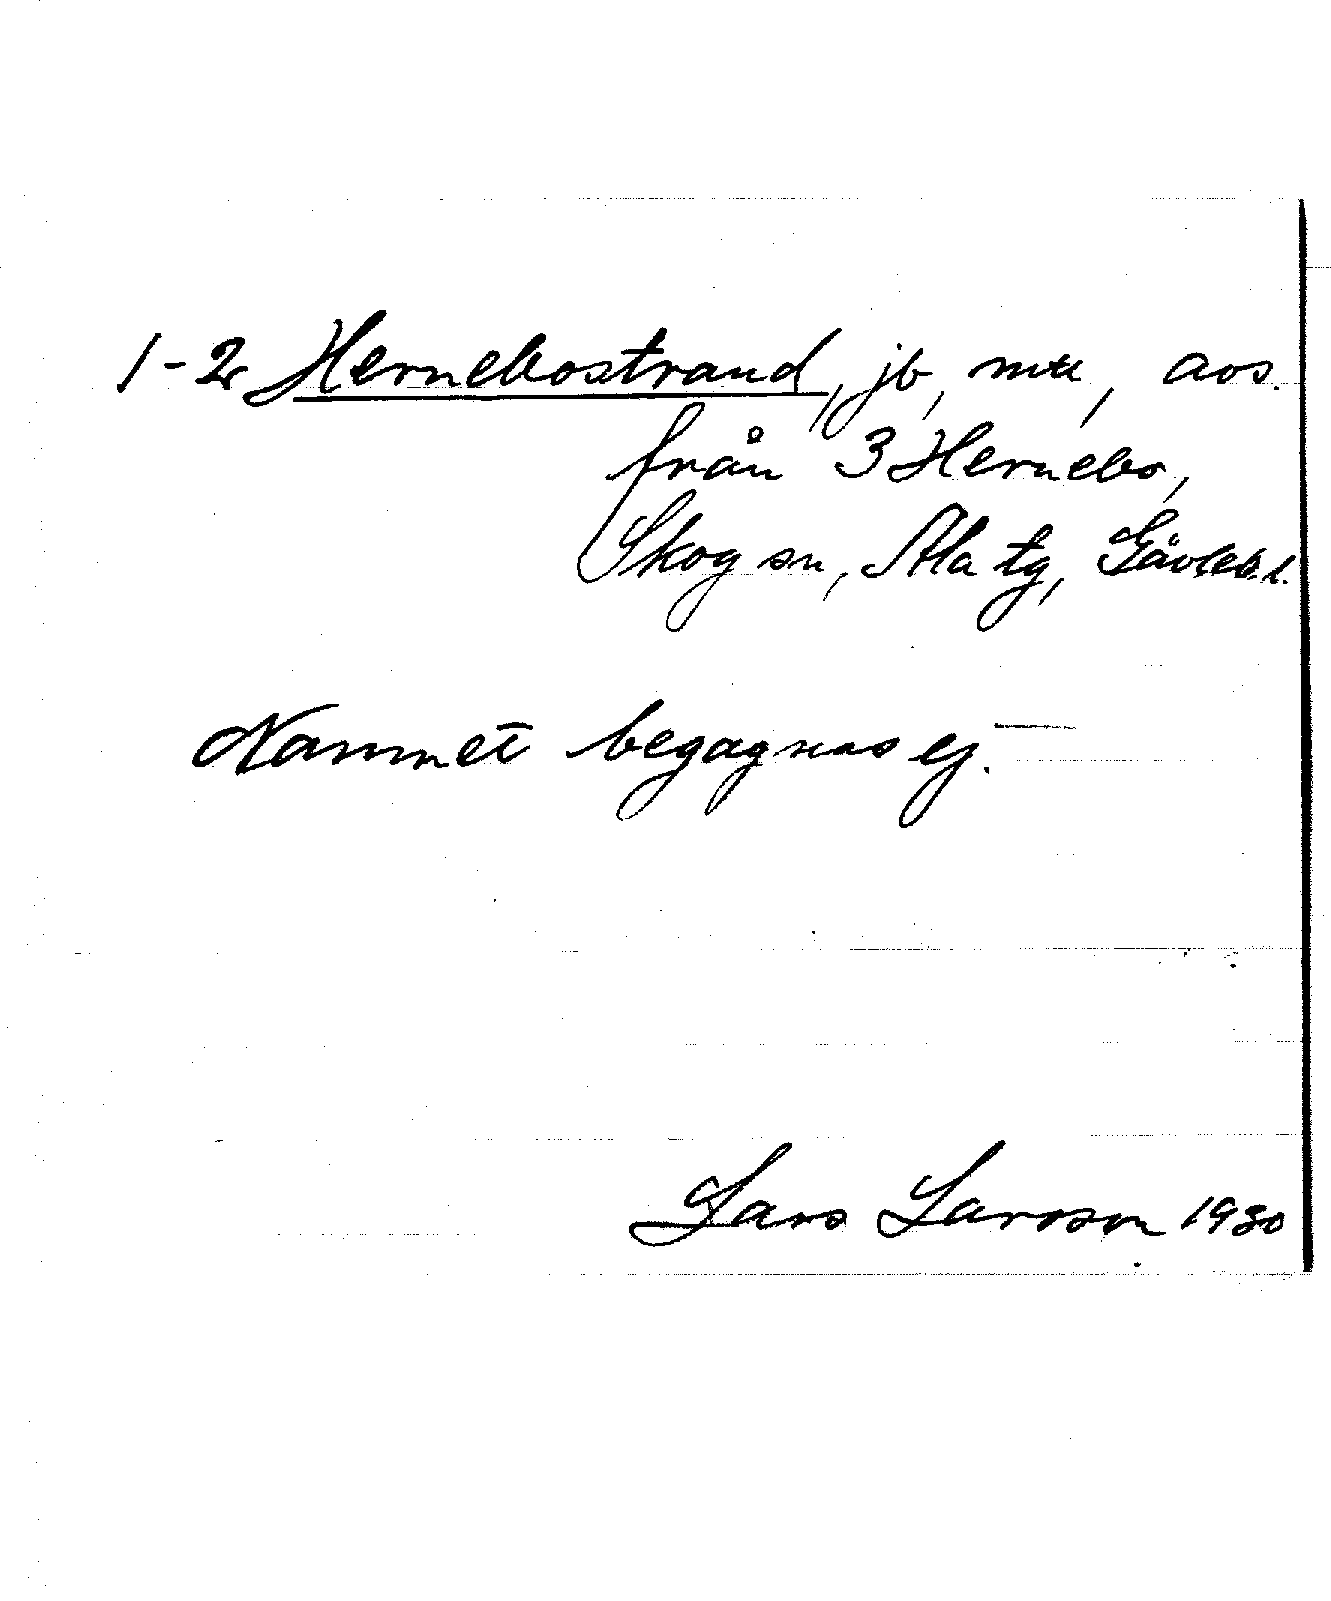 1-2 Hernebostrand, jb, mtl, avs.
från 3 Hernebo,
Skog sn, Ala tg, Gävleb. l.
Namnet begagnas ej.
Lars Larsson 1930